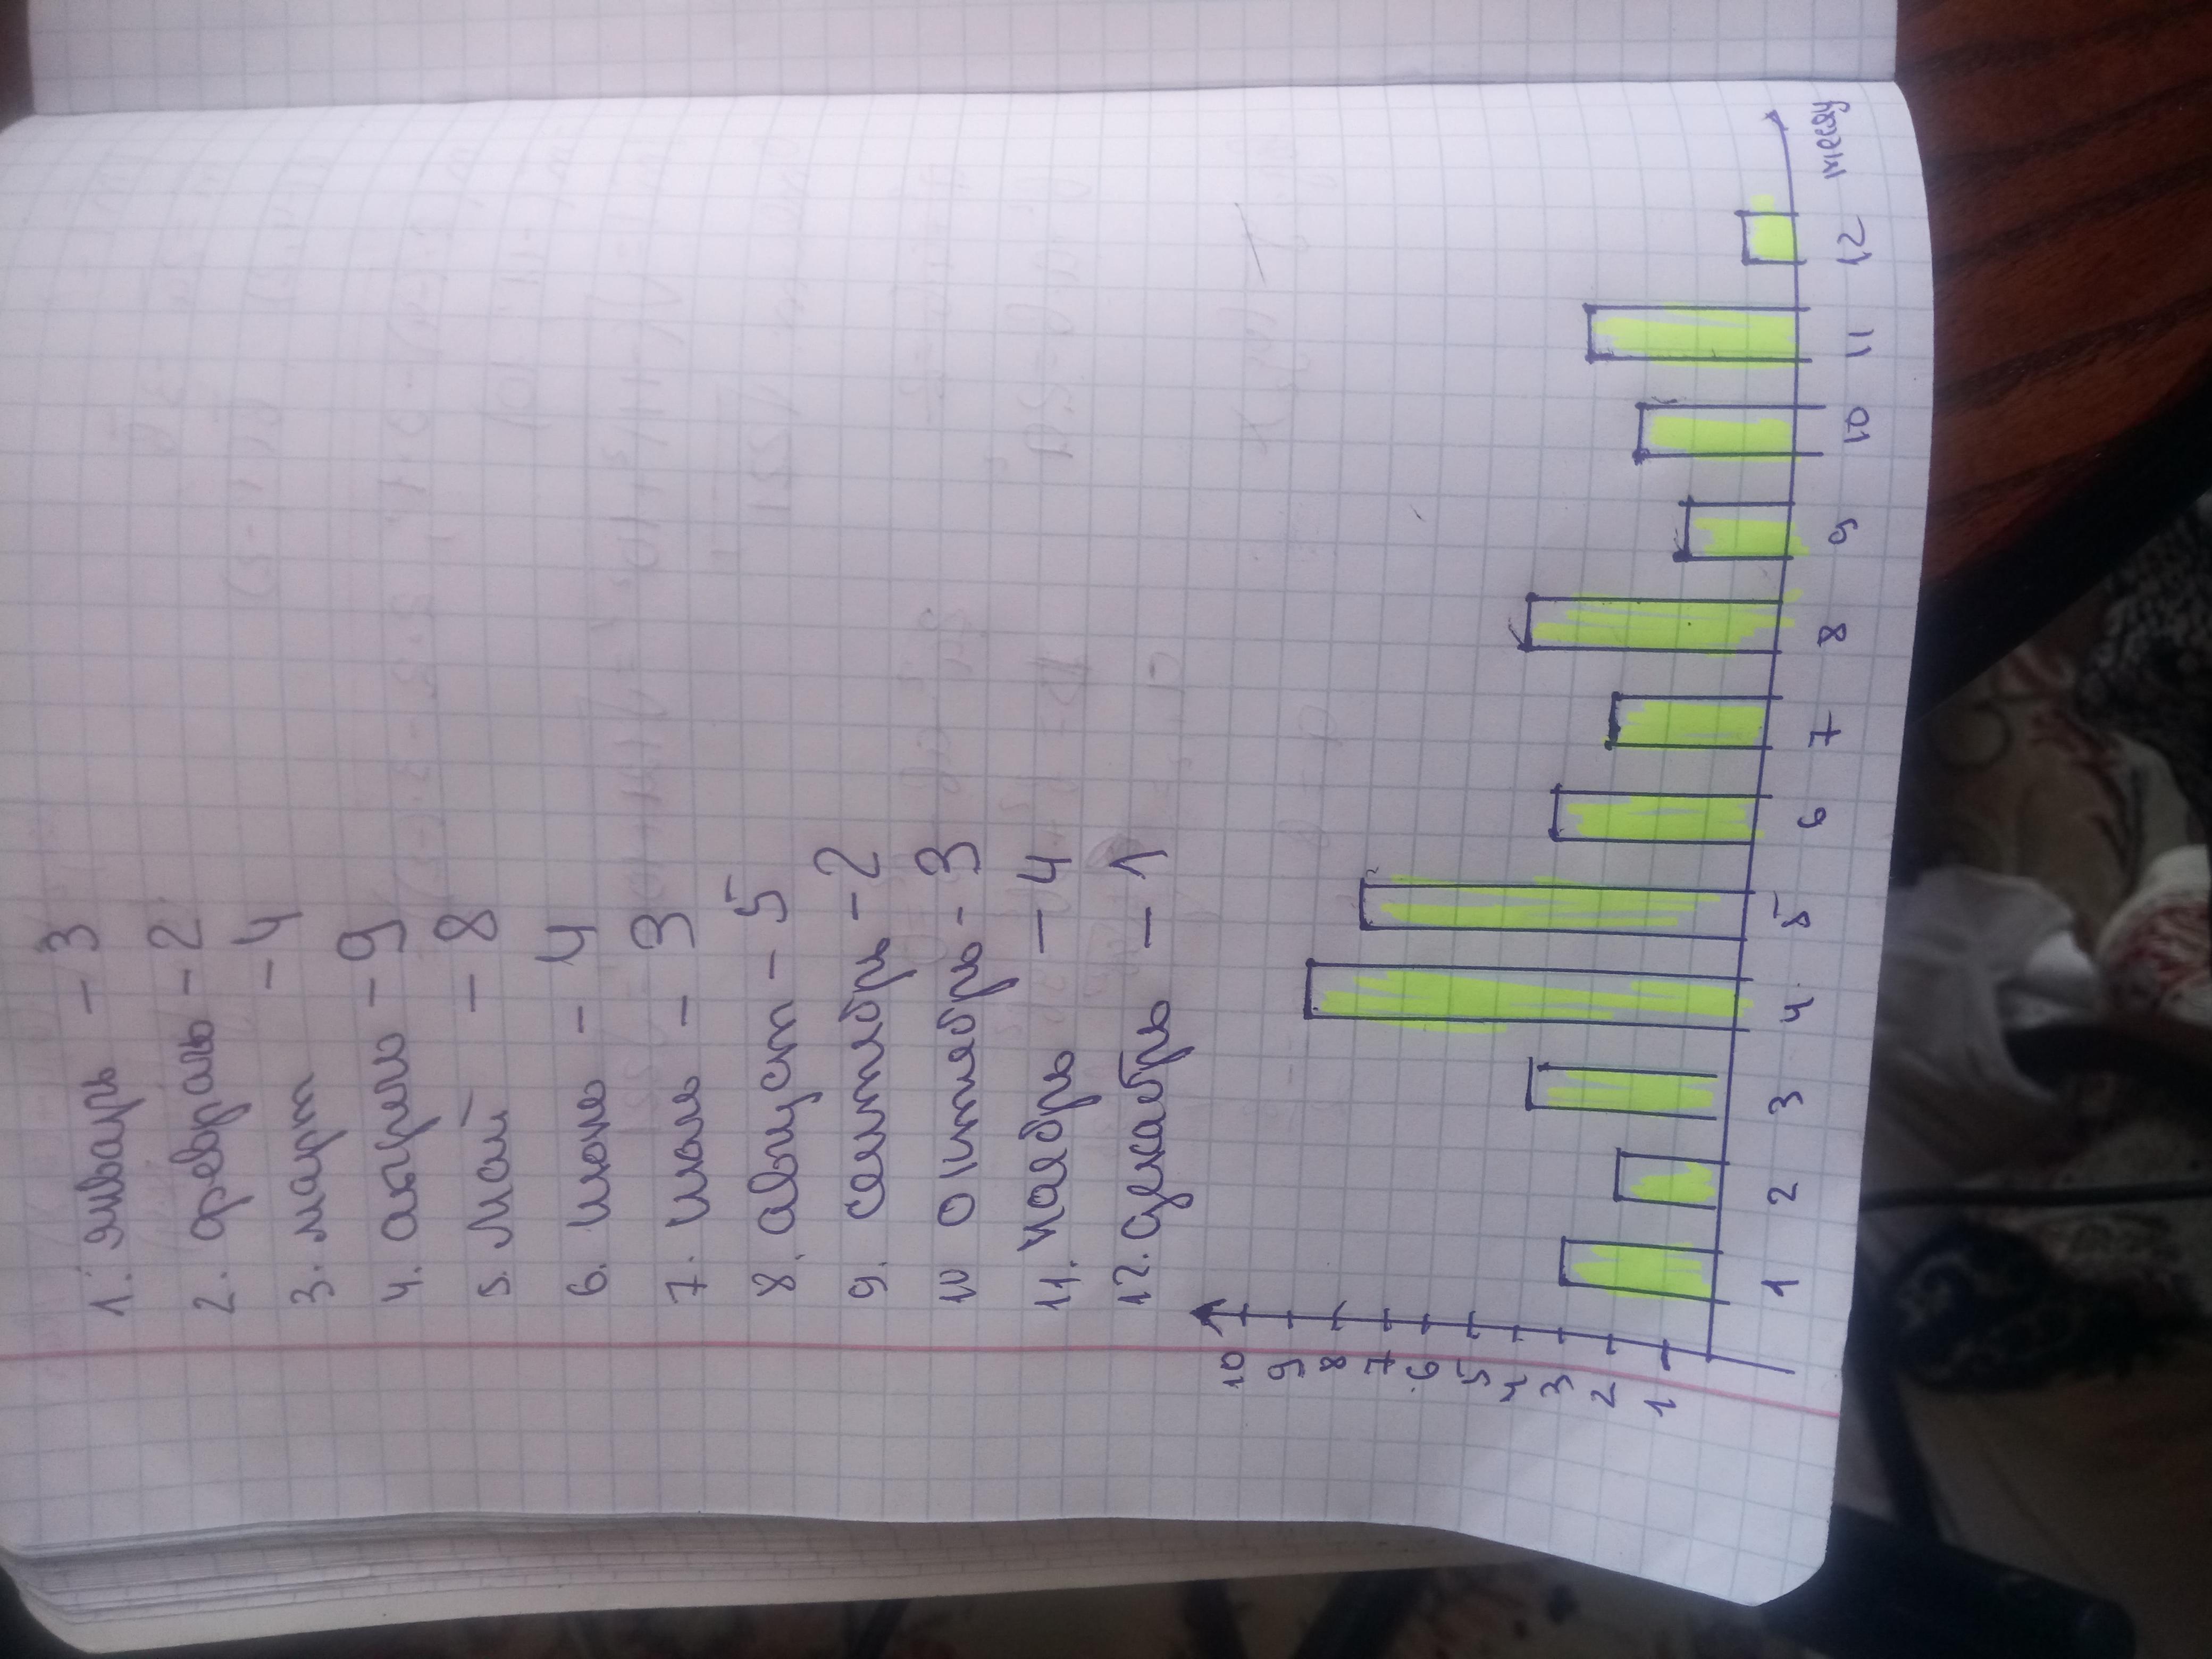 1. январь - 3
2. февраль - 2
3. март - 4
4. апрель - 9
5. май - 8
6. июнь - 4
7. июль - 3
8. август - 5
9. сентябрь - 2
10 октябрь - 3
11. ноябрь - 4
12. декабрь - 1
10
9
8
7
6
5
4
3
2
1
1 2 3 4 5 6 7 8 9 10 11 12